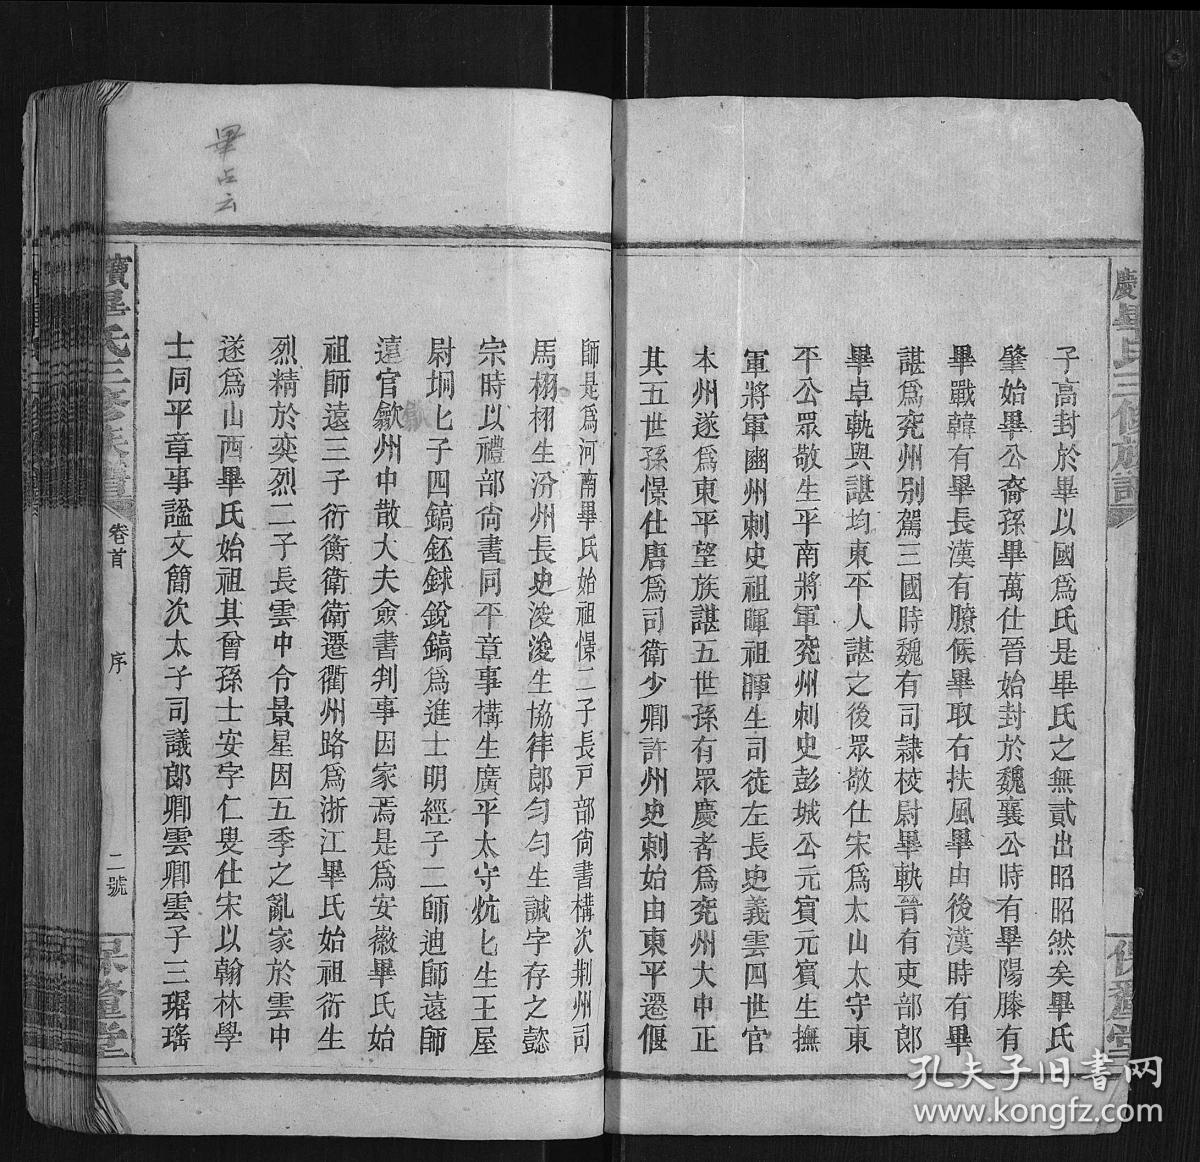 慶畢氏三修族譜
保釐堂
子高封於畢以國爲氏是畢氏之無貳出昭昭然矣畢氏
肇始畢公裔孫畢萬仕晉始封於魏襄公時有畢陽滕有
畢戰韓有畢長漢有膫候畢取右扶風畢由後漢時有畢
諶爲兖州别駕三國時魏有司隷校尉畢軌晉有吏部郎
畢卓軌與諶均東平人諶之後眾敬仕宋爲太山太守東
平公眾敬生平南將軍兖州刺史彭城公元賓元賓生撫
軍將軍豳州刺史祖暉祖暉生司徒左長史義雲四世官
本州遂爲東平望族諶五世孫有眾慶者爲兖州大中正
其五世孫憬仕唐爲司衛少卿許州史刺始由東平遷偃
師是爲河南畢氏始祖憬二子長戸部尙書構次荆州司
馬栩栩生汾州長史浚浚生協律郎匀匀生諴字存之懿
宗時以禮部尙書同平章事構生廣平太守炕匕生王屋
尉坰匕子四鎬鉟銶銳鎬爲進士明經子二師迪師遠師
遠官歙州中散大夫僉書判事因家焉是爲安徽畢氏始
祖師遠三子衍衡衛衛遷衢州路爲浙江畢氏始祖衍生
烈精於奕烈二子長雲中令景星因五季之亂家於雲中
遂爲山西畢氏始祖其曾孫士安字仁叟仕宋以翰林學
士同平章事諡文簡次太子司議郎卿雲卿雲子三琚瑤
畢氏三修族譜
卷首
序
二號
保釐堂
畢占云
孔夫子旧书网
www.kongfz.com